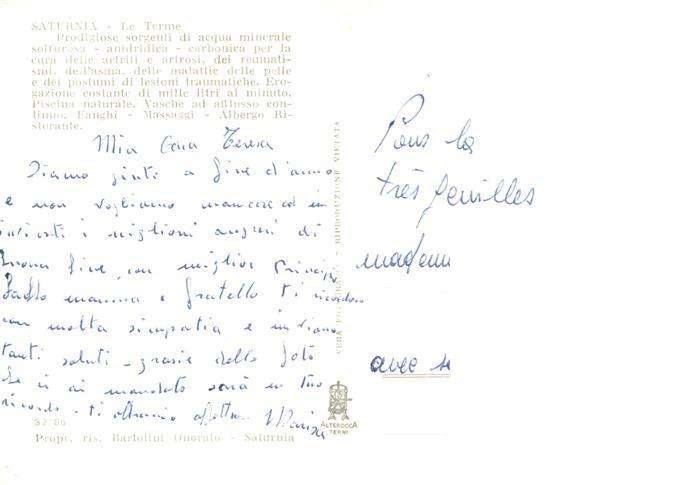 SATURNIA - Le Terme
Prodigiose sorgenti di acqua minerale
solfurosa - anidridica - carbonica per la
cura delle artriti e artrosi, dei reumati-
smi, dell'asma, delle malattie delle pelle
e dei postumi di lesioni traumatiche. Ero-
gazione costante di mille litri al minuto.
Piscina naturale. Vasche ad afflusso con-
tinuo. Fanghi - Massaggi - Albergo Ri-
storante.
Mia Cara Teresa
Siamo giuti a fine d'anno
e non vogliamo mancare ad in
i migliori auguri di
buona fine, con miglior Principio
mamma e fratello ti ricordano
con molta simpatia e inviano
tanti saluti - grazie delle foto
ci ai mandato sarà un tuo
ricordo - ti Marisa
52780
Propr. ris. Bartolini Onorato - Saturnia
VERA FOTOGRAFIA - RIPRODUZIONE VIETATA
ALTEROCCA
TERNI
Pour la
très gentilles
madam
avec